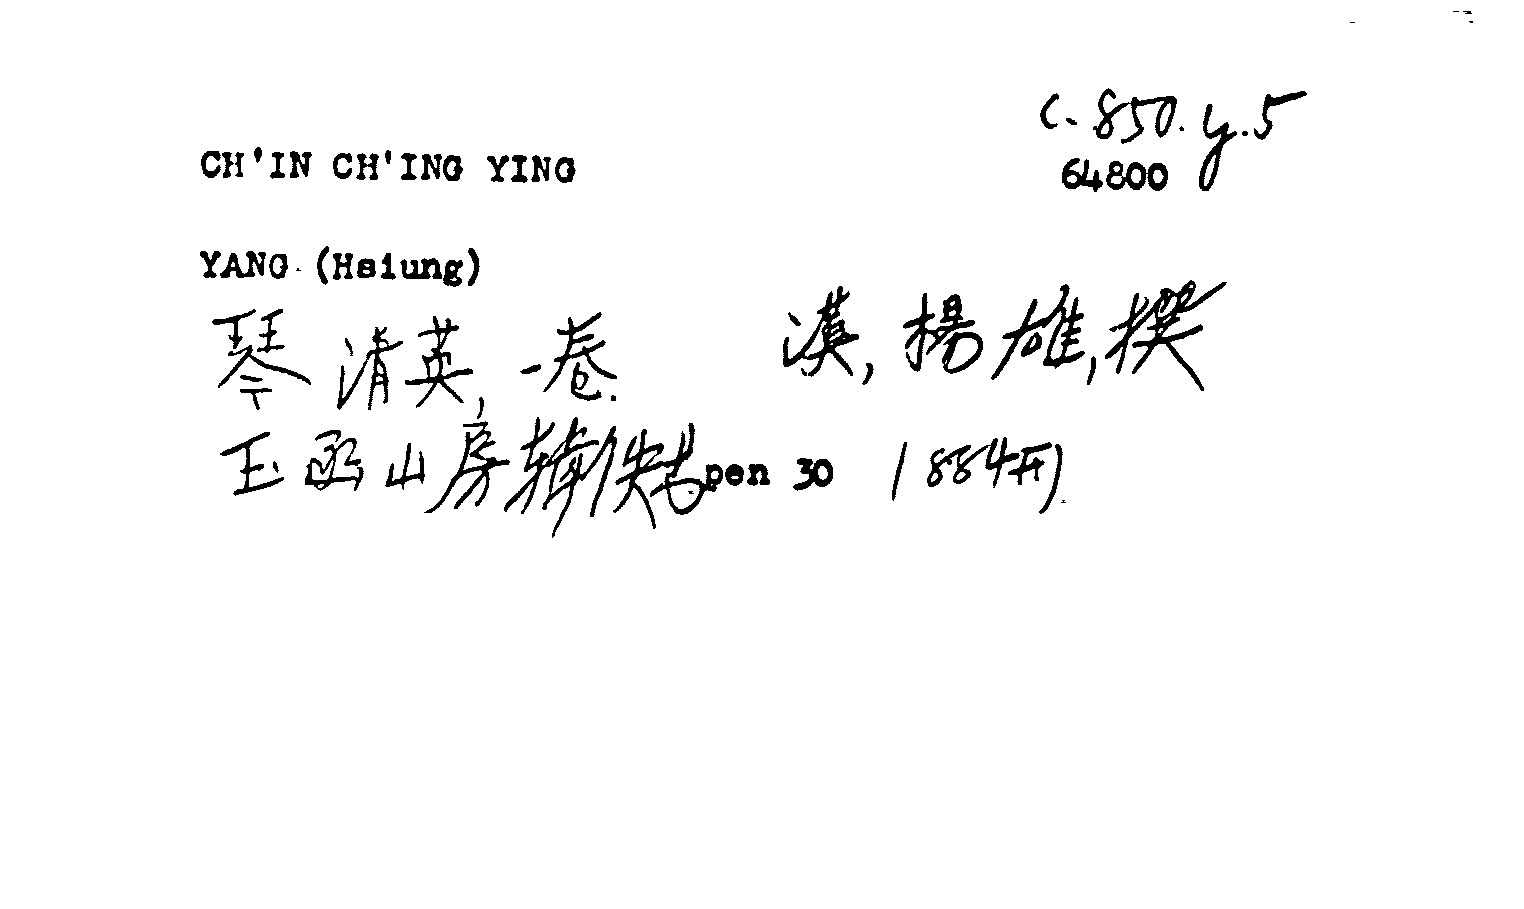 C. 850. y. 5
CH'IN CH'ING YING
64800
YANG (Hsiung)
琴清英, 一卷. 漢, 楊雄, 撰
玉函山房輯佚書 pen 30 1884刊.